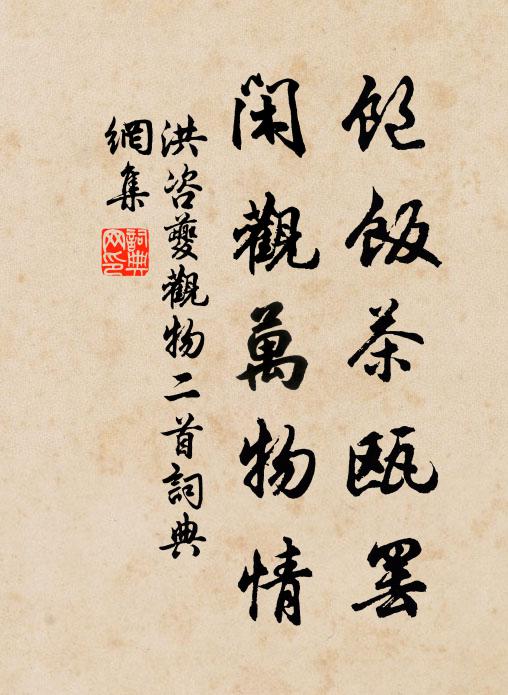 飽飯茶甌罷
閑觀萬物情
洪咨夔觀物二首詞典
網集
詞典
网印